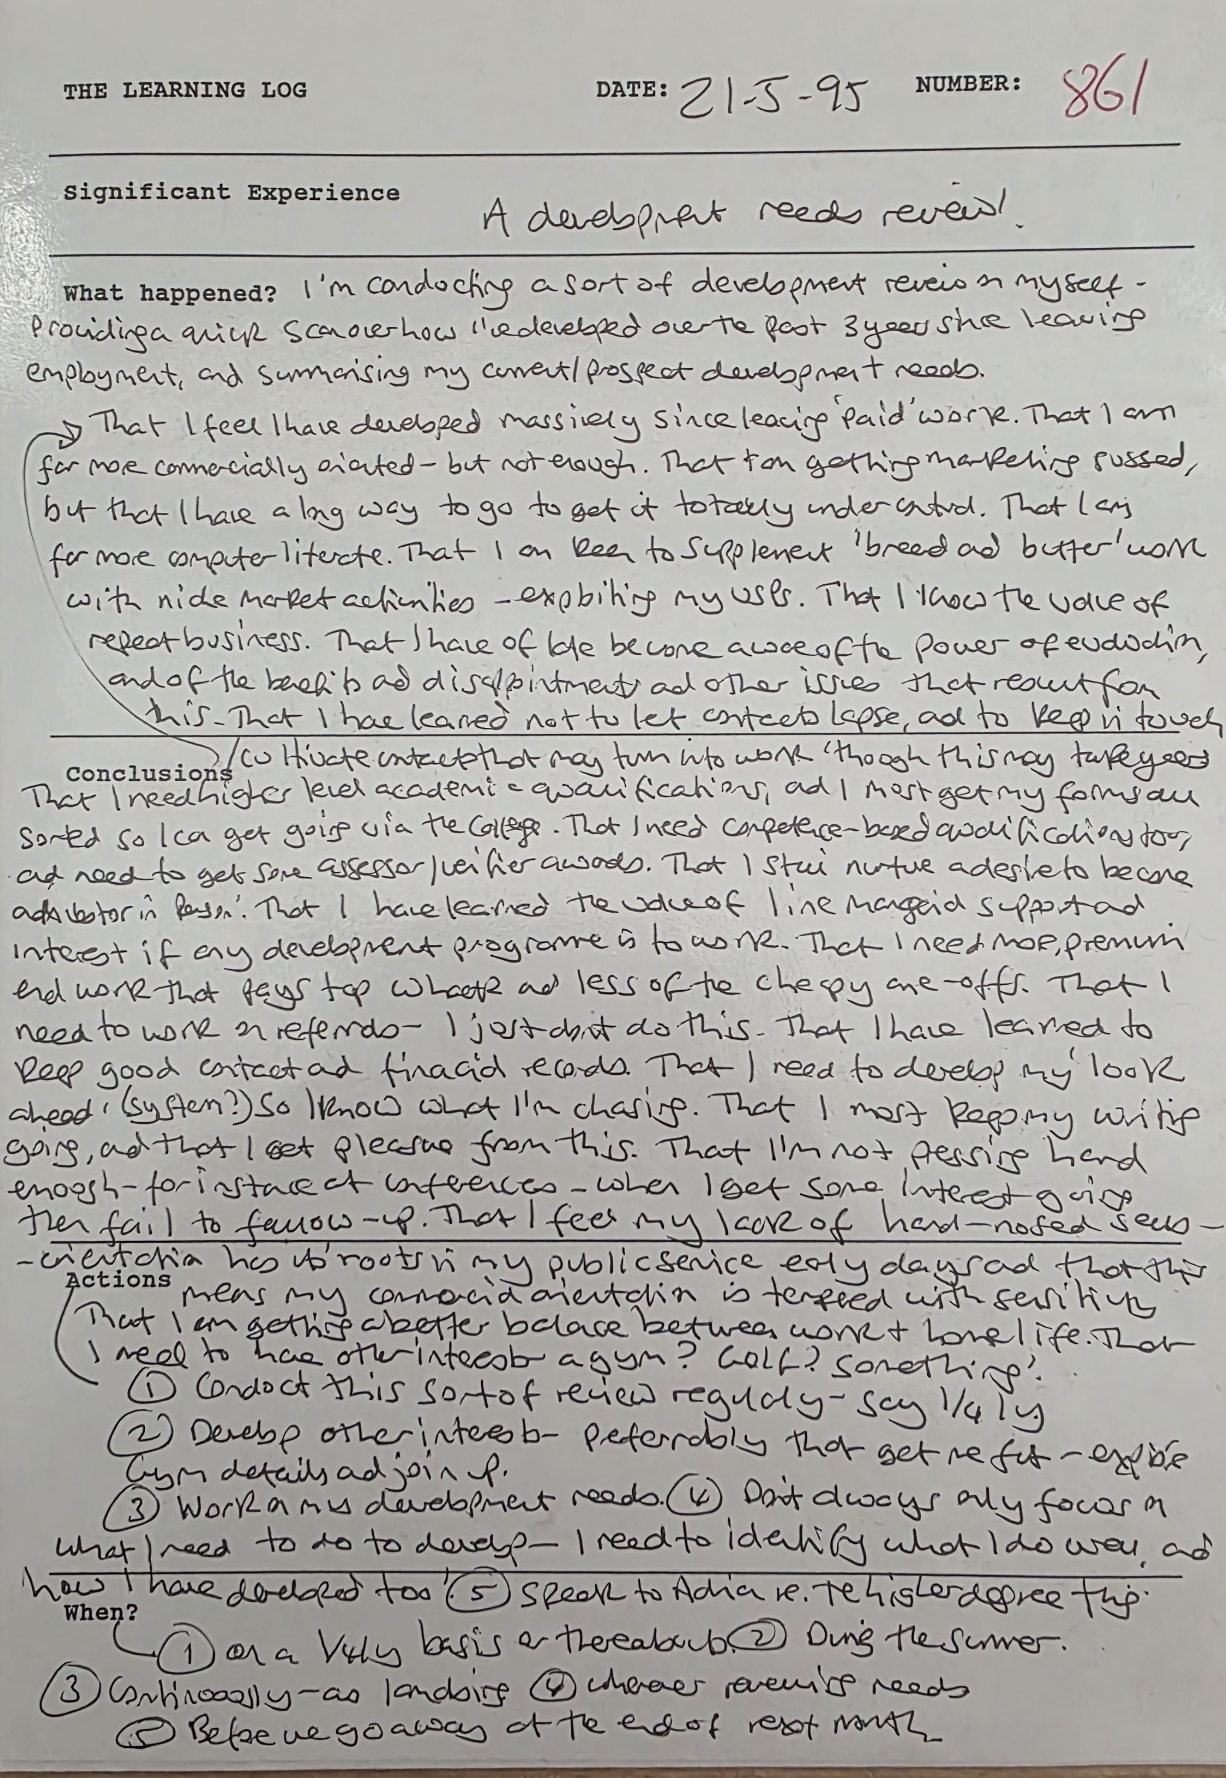 THE LEARNING LOG DATE: 21-5-95 NUMBER: 861
Significant Experience A development needs review!
What happened? I'm conducting a sort of development review on myself -
Providing a quick scan over how I've developed over the past 3 years since leaving
employment, and summarising my current/prospect development needs.
That I feel I have developed massively since leaving 'paid' work. That I am
far more commercially orientated - but not enough. That I am getting marketing sussed,
but that I have a long way to go to get it totally under control. That I am
far more computer literate. That I am keen to supplement 'bread and butter' work
with niche market activities - exploiting my USPs. That I know the value of
repeat business. That I have of late become aware of the power of evaluation,
and of the benefits and disappointments and other issues that result from
this. That I have learned not to let contacts lapse, and to keep in touch
/cultivate contacts that may turn into work 'though this may take years
Conclusions
That I need higher level academic qualifications, and I must get my forms all
sorted so I can get going via the College. That I need competence-based qualifications too,
and need to get some assessor/verifier awards. That I still nurture a desire to become
a 'Investor in Person'. That I have learned the value of line managerial support and
interest if any development programme is to work. That I need more, premium
end work that pays top whack and less of the cheapy one-offs. That I
need to work on referrals - I just don't do this. That I have learned to
keep good contact and financial records. That I need to develop my 'look
ahead' (system?) so I know what I'm chasing. That I must keep my writing
going, and that I get pleasure from this. That I'm not pressing hard
enough - for instance at conferences - when I get some interest going
then fail to follow-up. That I feel my lack of hard-nosed sales -
- orientation has its roots in my public service early days and that this
Actions means my commercial orientation is tempered with sensitivity
That I am getting a better balance between work + home life. That
I need to have other interests - a gym? Golf? Something!
① Conduct this sort of review regularly - say 1/4ly
② Develop other interests - preferrably that get me fit - explore
Gym details and join up.
③ Work on my development needs. ④ Don't always only focus on
what I need to do to develop - I need to identify what I do well, and
how I have developed too! ⑤ Speak to Adrian re. the higher degree thing.
When?
① On a 1/4ly basis or thereabouts. ② During the summer.
③ Continuously - as landsing ④ Whenever reviewing needs
⑤ Before we go away at the end of next month